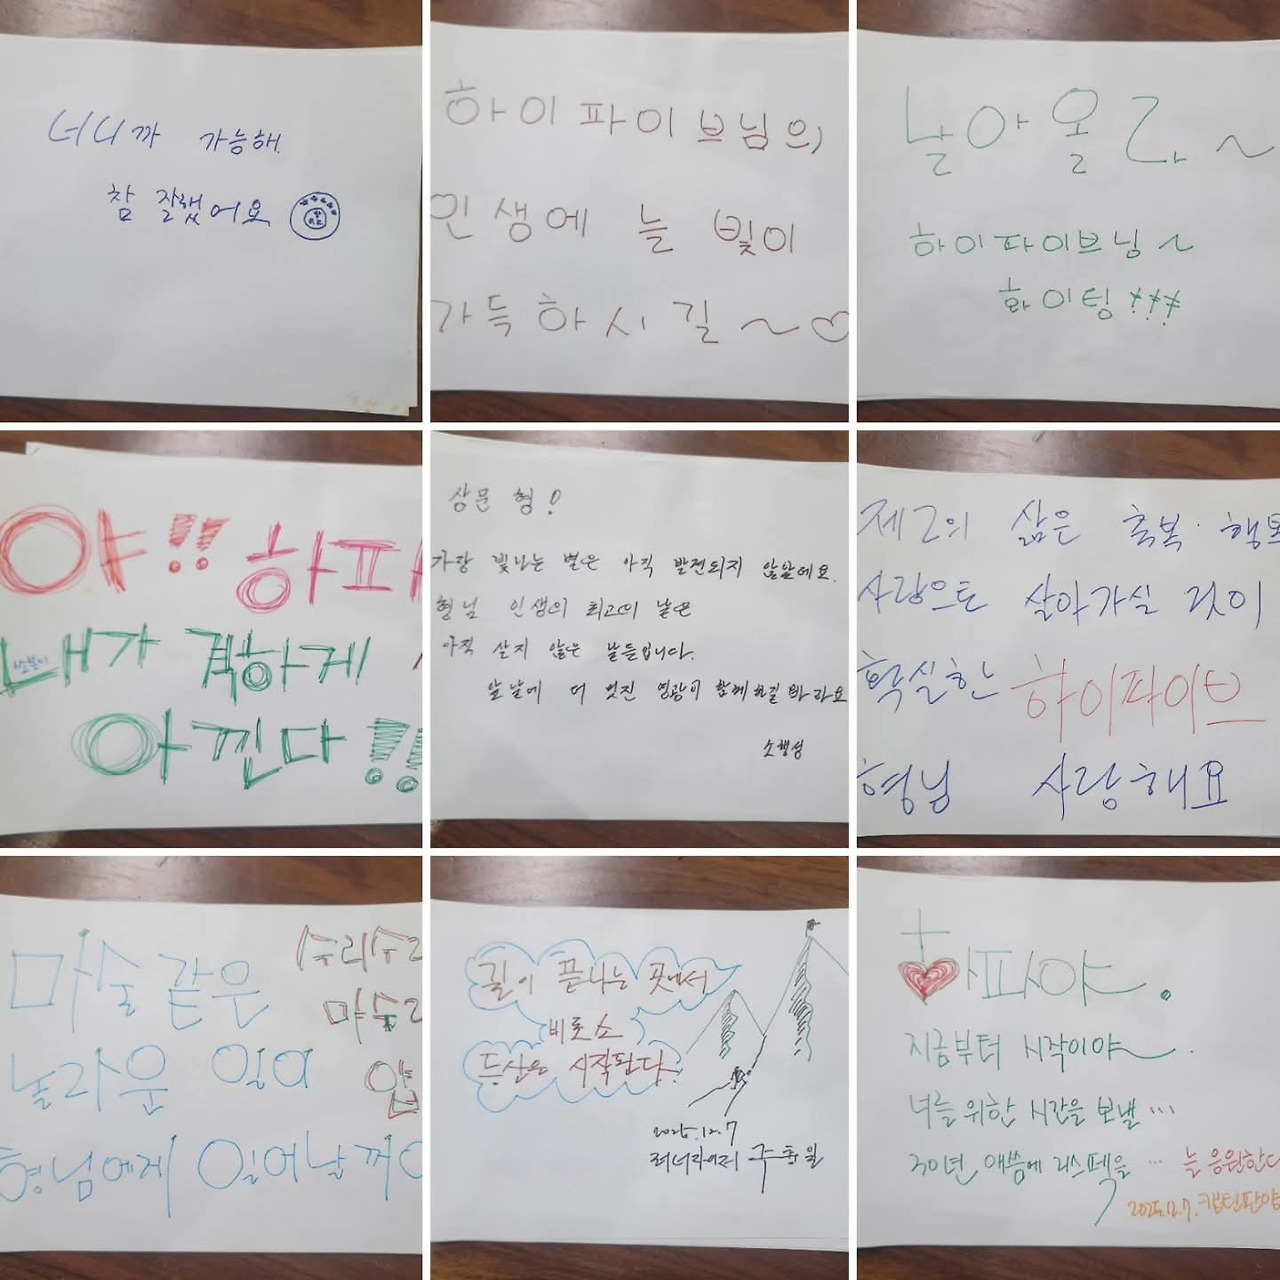 너니까 가능해.
참 잘했어요
하이파이브님의
인생에 늘 빛이
가득하시길~♡
날아올라~
하이파이브님~
화이팅!!!
야!! 하파
내가 격하게
아낀다!!
상문 형!
가장 빛나는 별은 아직 발견되지 않았에요.
형님 인생의 최고의 날은
아직 살지 않은 날들입니다.
앞날에 더 멋진 영광이 함께하길 바라요
소행성
제2의 삶은 축복·행복
사랑으로 살아가실 것이
확실한 하이파이브
형님 사랑해요
마술같은
놀라운 일이
형님에게 일어날꺼
수리수리
마수리
얍
길이 끝나는 곳에서
비로소
등산은 시작된다.
2025.12.7
하파야~.
지금부터 시작이야~.
너를 위한 시간을 보낼...
30년 애씀에 리스펙을... 늘 응원한다
2025.12.7. 캡틴판양